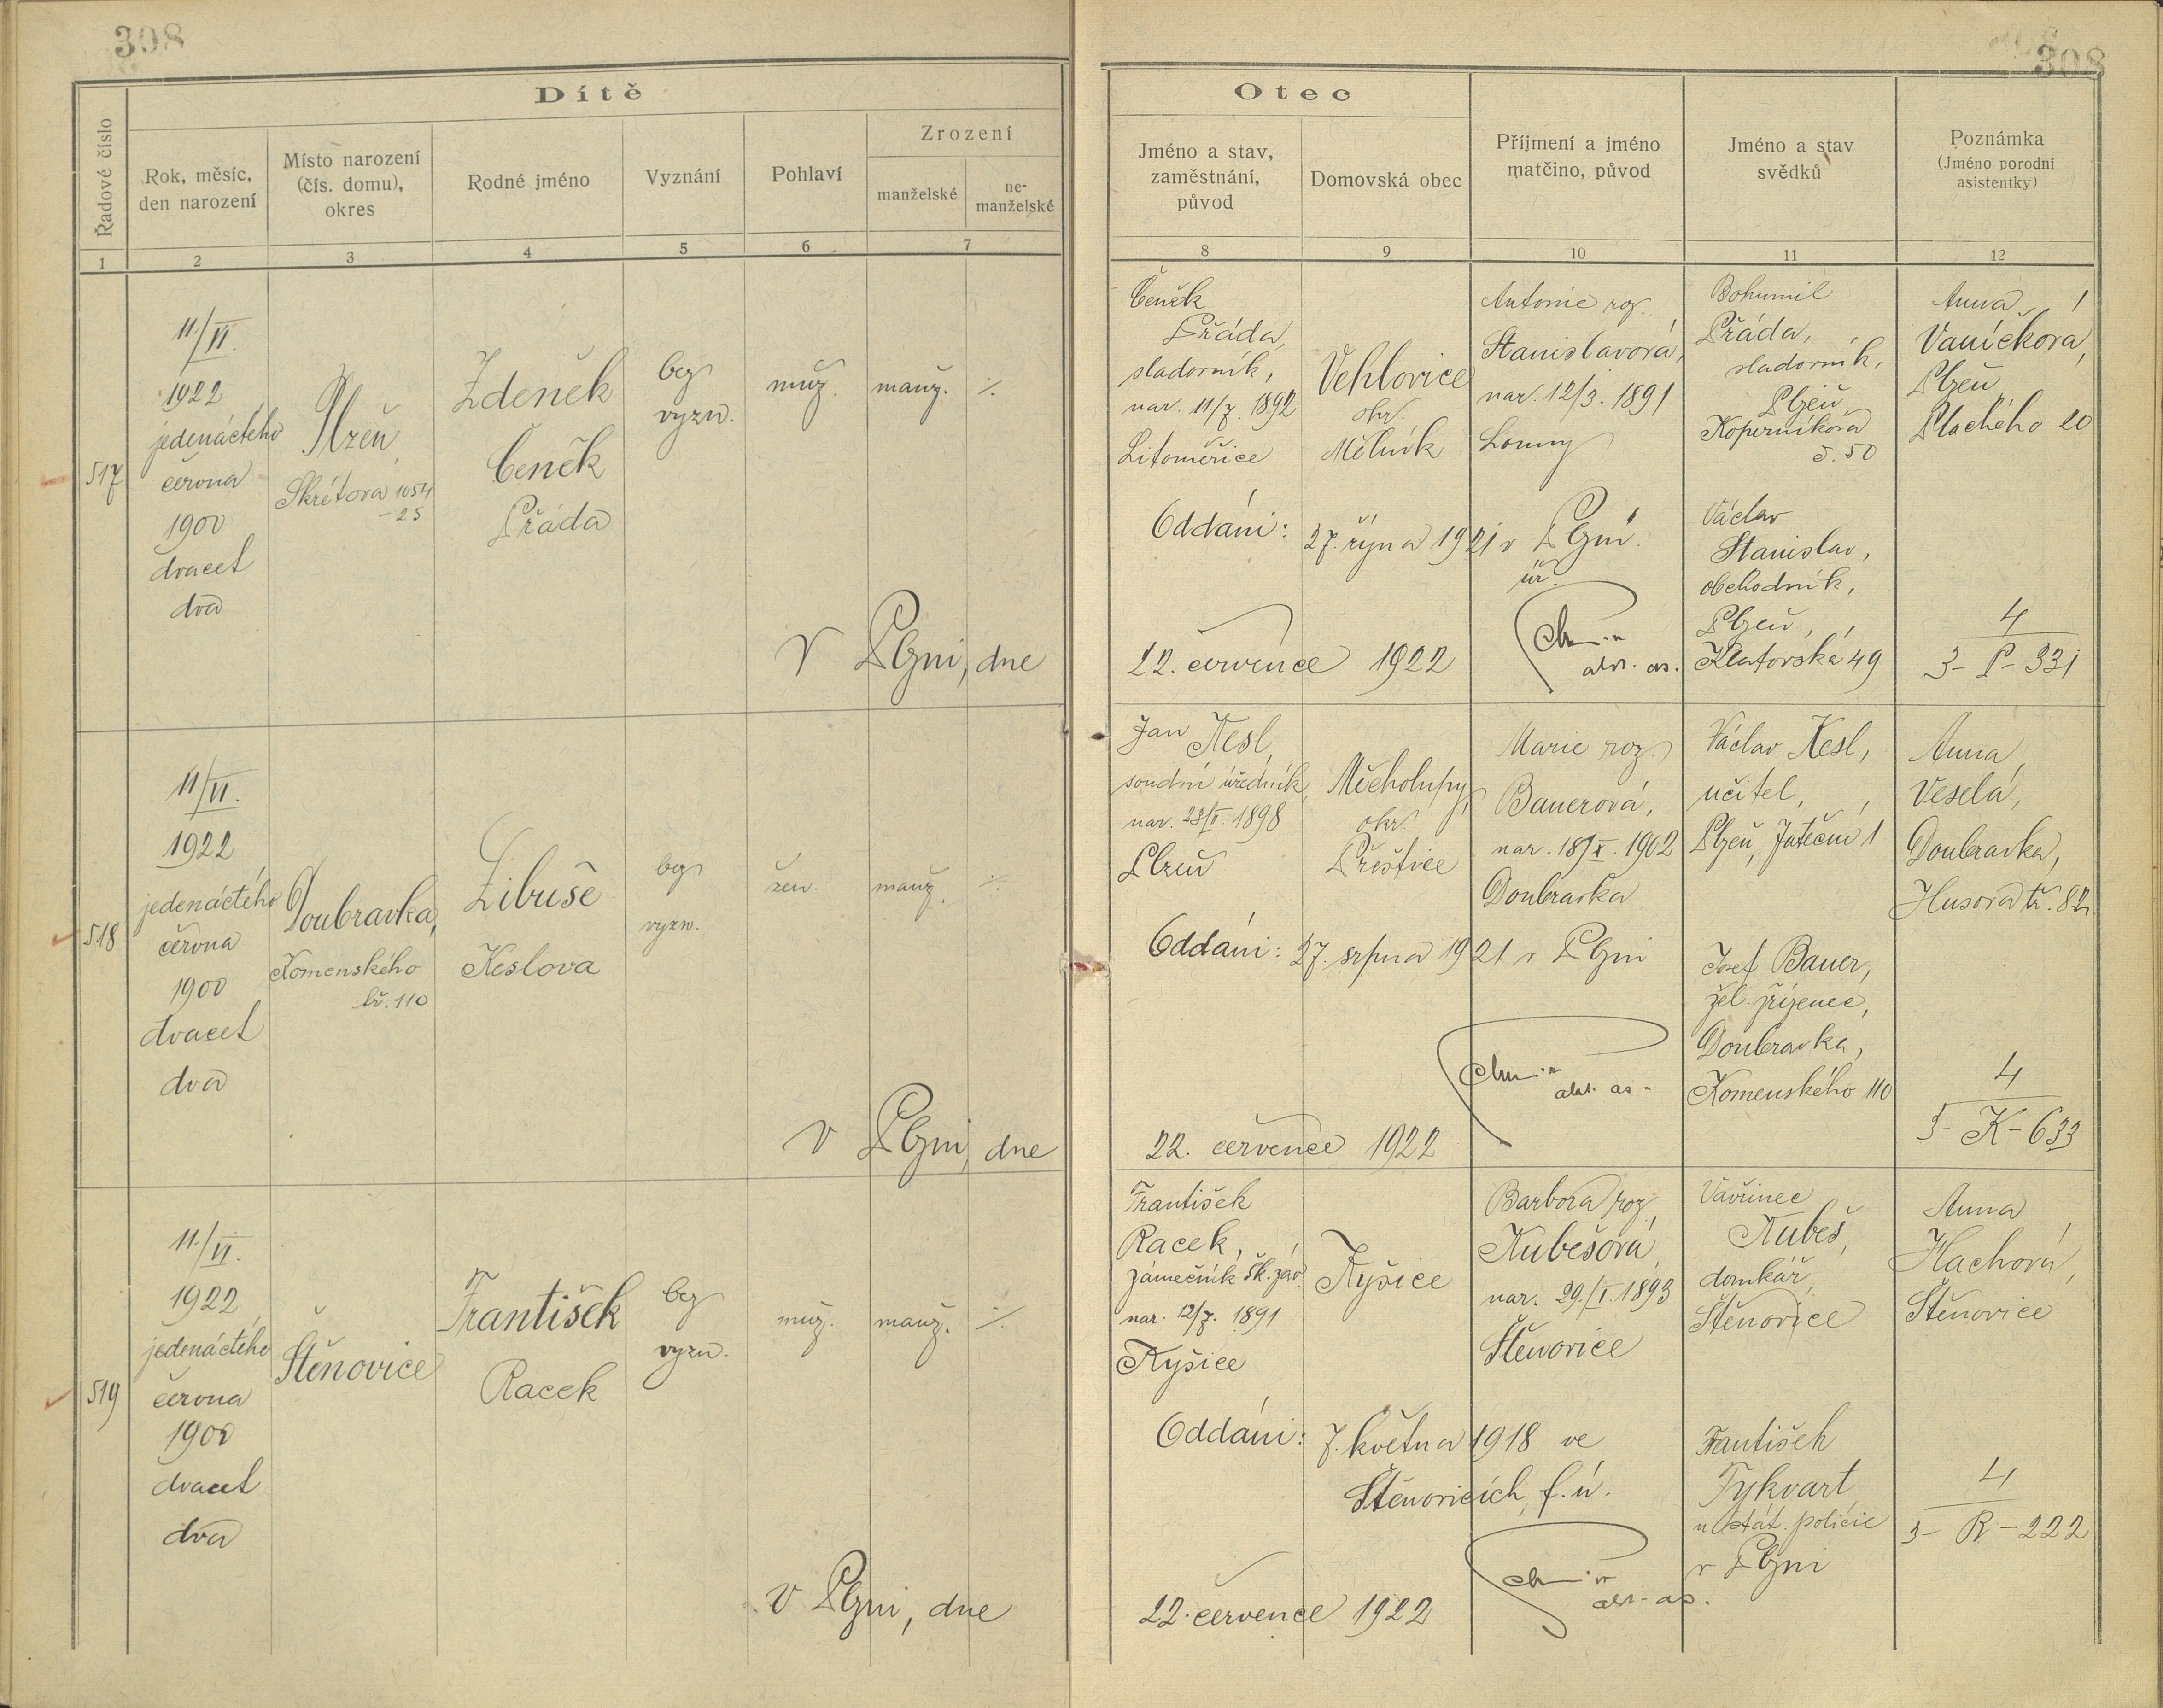 308
308
Dítě
Řadové číslo
Rok, měsíc,
den narození
Místo narození
(čís. domu),
okres
Rodné jméno
Vyznání
Pohlaví
Zrození
manželské
ne-
manželské
1
2
3
4
5
6
7
Otec
Jméno a stav,
zaměstnání,
původ
Domovská obec
Příjmení a jméno
matčino, původ
Jméno a stav
svědků
Poznámka
(Jméno porodní
asistentky)
8
9
10
11
12
517
11./VI.
1922
jedenáctého
června
1900
dvacet
dva
Plzeň,
Skrétova 1054
-25
Zdeněk
Čeněk
Přáda
bez
vyzn.
muž.
manž.
./.
V Plzni, dne
Čeněk
Přáda,
sladovník,
nar. 11/7. 1892
Litoměřice
Vehlovice
okr.
Mělník
Antonie roz.
Stanislavová,
nar. 12/3. 1891
Louny
Oddáni: 27. října 1921 v Plzni.
22. července 1922
Bohumil
Přáda,
sladovník,
Plzeň
Koperníkova
č. 50
Václav
Stanislav,
obchodník,
Plzeň,
Klatovská 49
Anna
Vaníčková,
Plzeň
Plachého 20
4
3- P- 331
518
11/VI.
1922
jedenáctého
června
1900
dvacet
dva
Doubravka,
Komenského
tř. 110
Libuše
Keslova
bez
vyzn.
žen.
manž.
./.
V Plzni, dne
Jan Kesl,
soudní úředník,
nar. 23/II. 1898
Plzeň
Měcholupy,
okr.
Přeštice
Marie roz.
Bauerová,
nar. 18/X. 1902
Doubravka
Oddáni: 27. srpna 1921 v Plzni
22. července 1922
Václav Kesl,
učitel,
Plzeň, Jateční 1
Josef Bauer,
žel. zřízenec,
Doubravka,
Komenského 110
Anna
Veselá,
Doubravka,
Husova tř. 82
4
3- K- 633
519
11./VI.
1922
jedenáctého
června
1900
dvacet
dva
Štěnovice
František
Racek
bez
vyzn.
muž.
manž.
./.
V Plzni, dne
František
Racek,
zámečník šk. záv.
nar. 12/7. 1891
Kyšice
Kyšice
Barbora roz.
Kubešová,
nar. 29./I. 1893
Štěnovice
Oddáni: 7. května 1918 ve
Štěnovicích, f. ú.
22. července 1922
Vavřinec
Kubeš,
domkář,
Štěnovice
František
Tykvart
u stát. policie
v Plzni
Anna
Hachová,
Štěnovice
4
3- R- 222